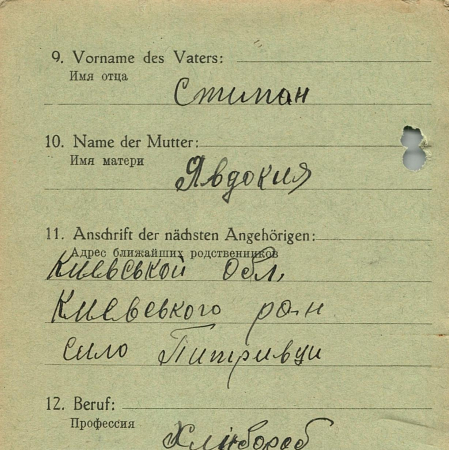 9. Vorname des Vaters:
Имя отца
Стипан
10. Name der Mutter:
Имя матери
Явдокия
11. Anschrift der nächsten Angehörigen:
Адрес ближайших родственников
Киевськой обл,
Киевського ра-н
сило Питривци
12. Beruf:
Профессия
Хлибороб